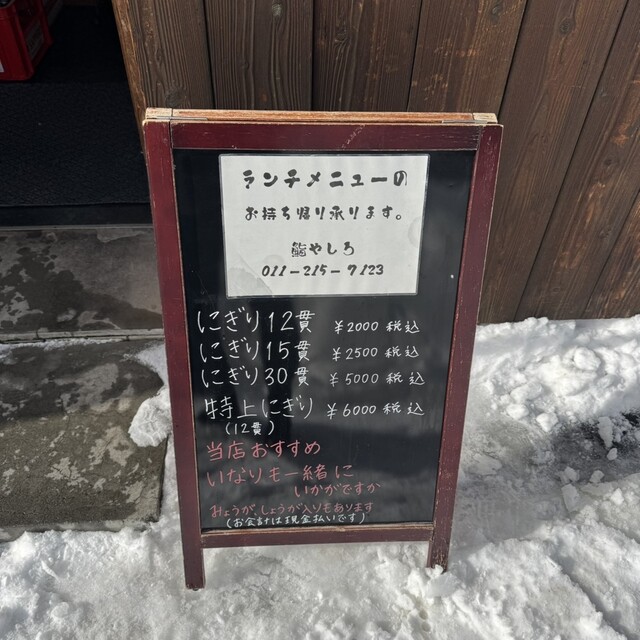 ランチメニューの
お持ち帰り承ります。
鮨やしろ
011-215-7123
にぎり12貫 ￥2000 税込
にぎり15貫 ￥2500 税込
にぎり30貫 ￥5000 税込
特上にぎり ￥6000 税込
(12貫)
当店おすすめ
いなりも一緒に
いかがですか
みょうが、しょうが入りもあります
(お会計は現金払いです)